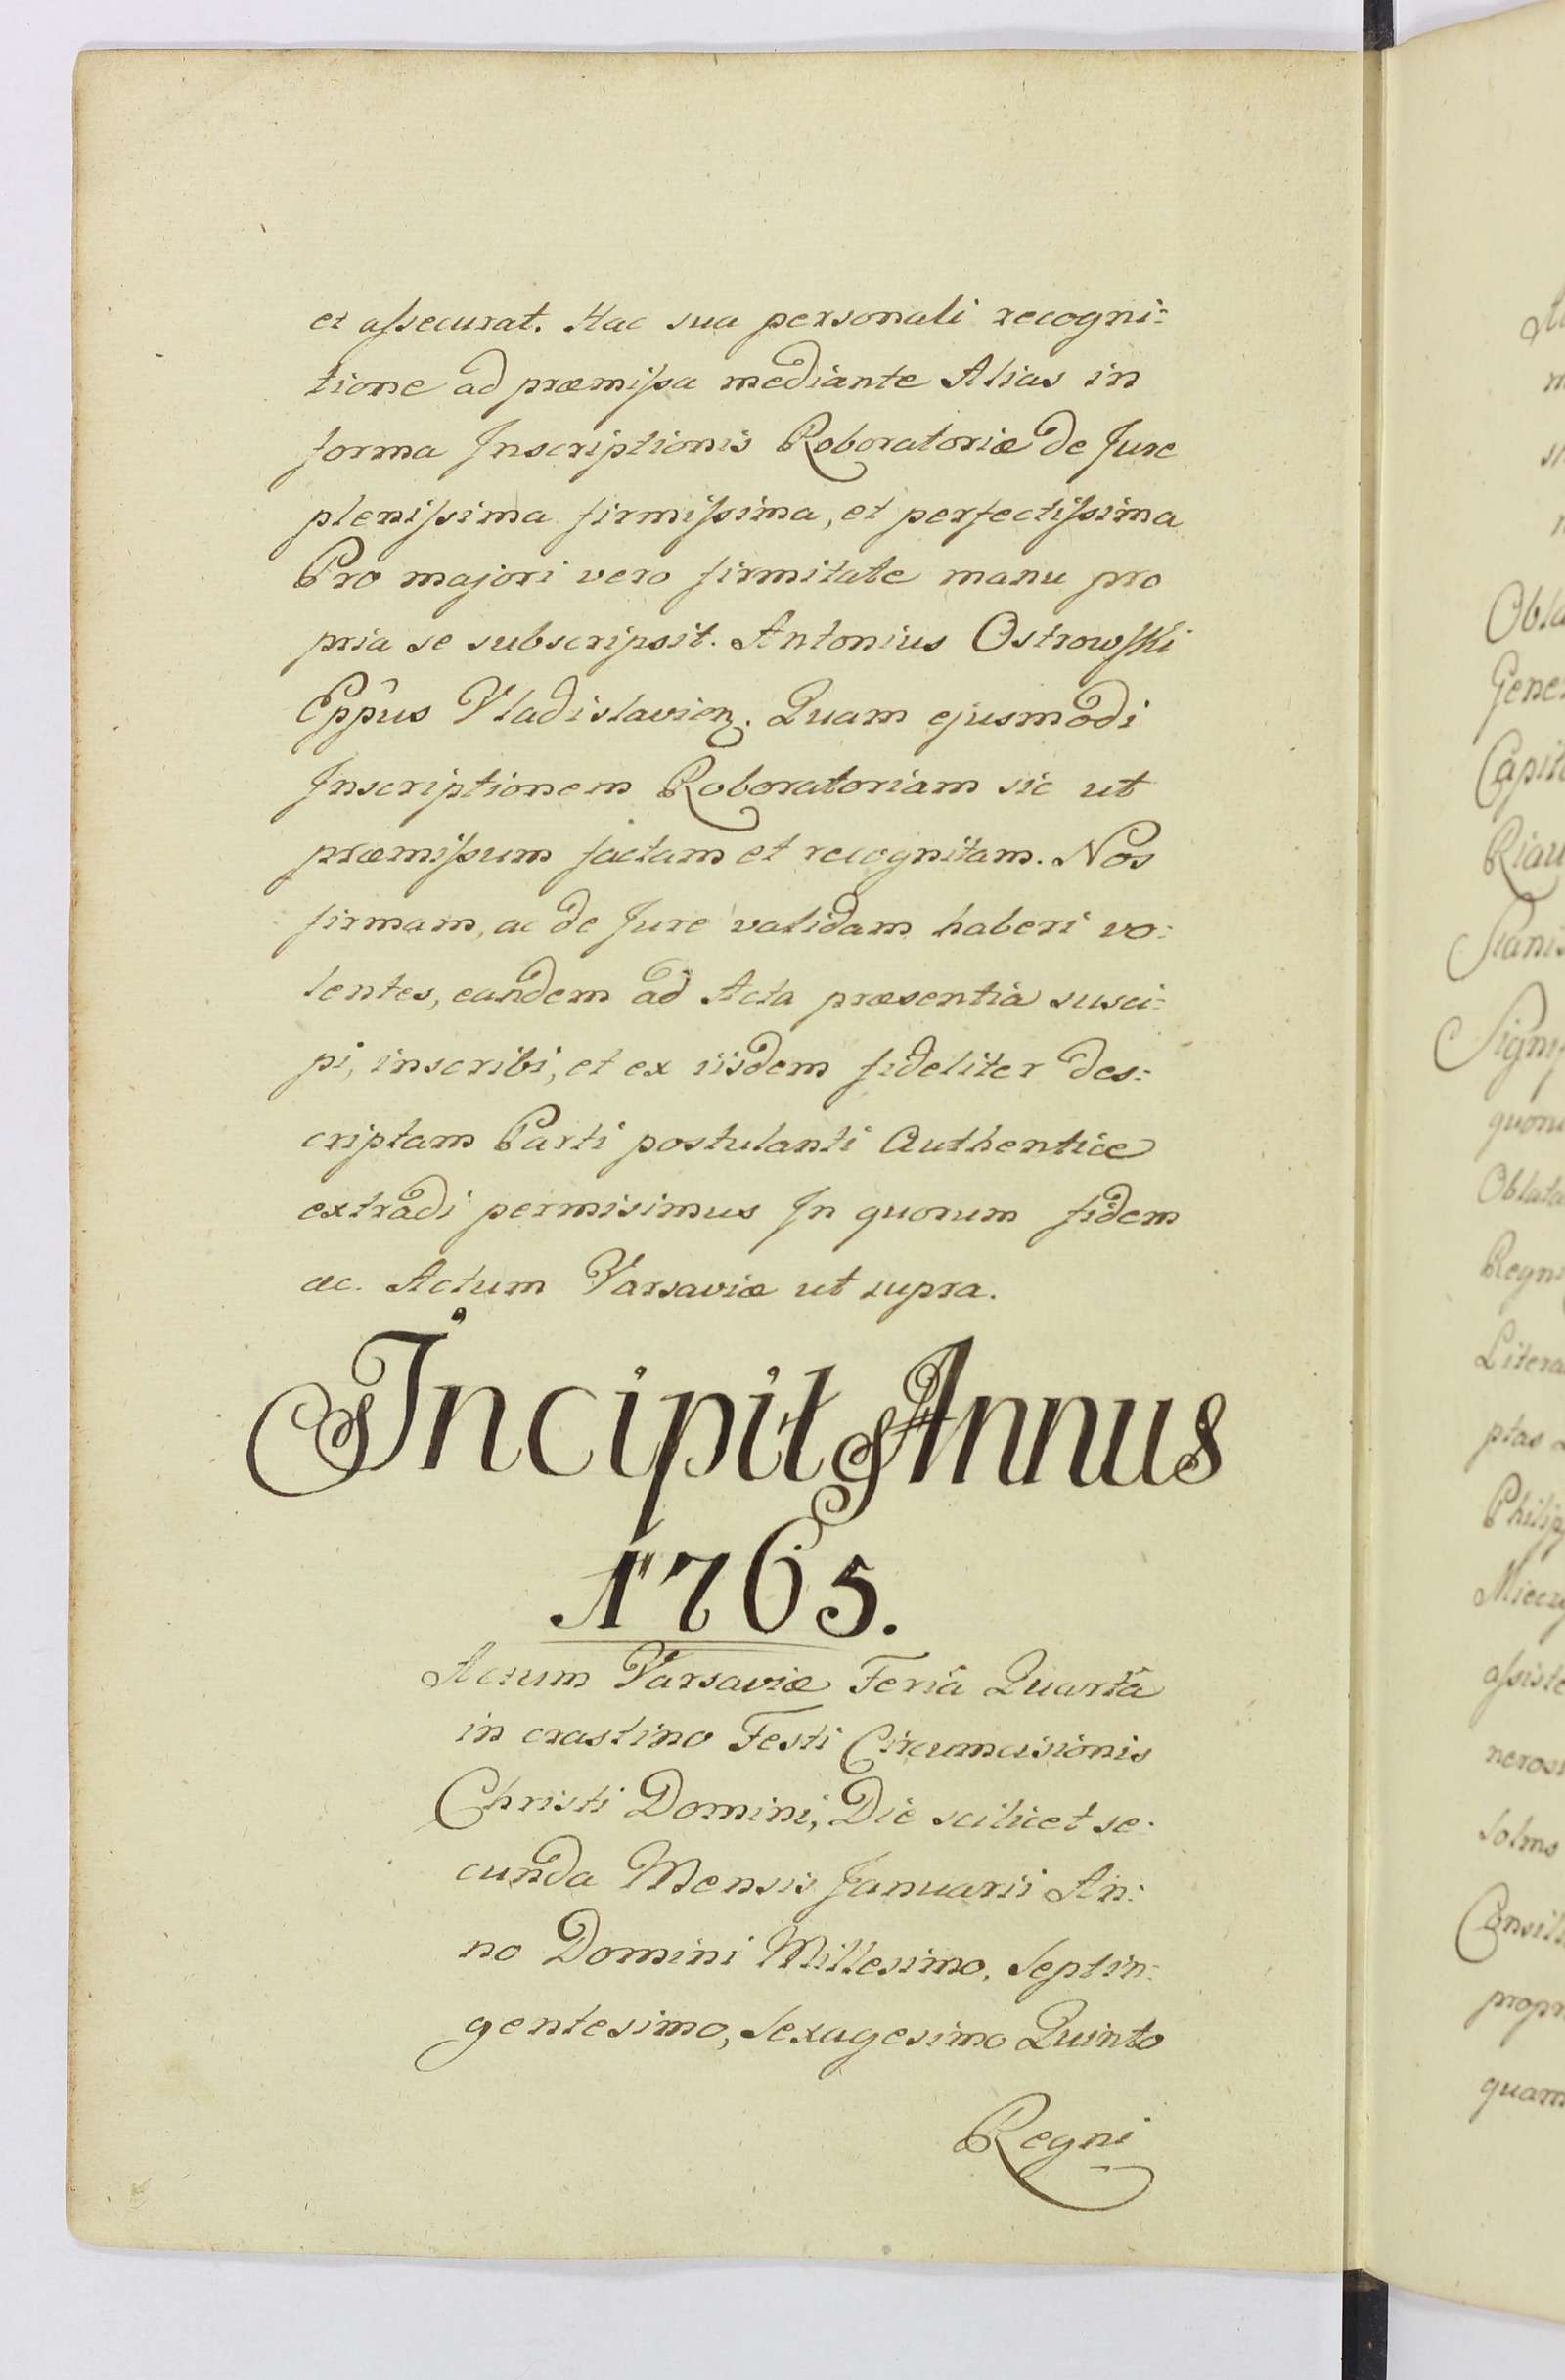 et assecurat. Hac sua personali recogni:
tione ad præmissa mediante Alias in
forma Inscriptionis Roboratoriæ de Jure
plenissima firmissima, et perfectissima
Pro majori vero firmitate manu pro
pria se subscripsit. Antonius Ostrowski
Eppûs Vladislavien. Quam ejusmodi
Inscriptionem Roboratoriam sic ut
præmissum factam et recognitam. Nos
firmam, ac de Jure validam haberi vo:
lentes, eandem ad Acta præsentia susci:
pi, inscribi, et ex iisdem fideliter des:
criptam Parti postulanti Authentice
extradi permisimus In quorum fidem
ac. Actum Varsaviæ ut supra.
Incipit Annus
1765.
Actum Varsaviæ Feriâ Quartâ
in crastino Festi Circumcisionis
Christi Domini, Die scilicet se:
cunda Mensis Januarii An:
no Domini Millesimo, Septin:
gentesimo, Sexagesimo Quinto
Regni
Obla
Gene
Capit
Riau
Stanis
Signif
quoru
Oblata
Regni
Litera
ptas
Philip
Miecz
assiste
neros
Solms
Consili
propr
quam